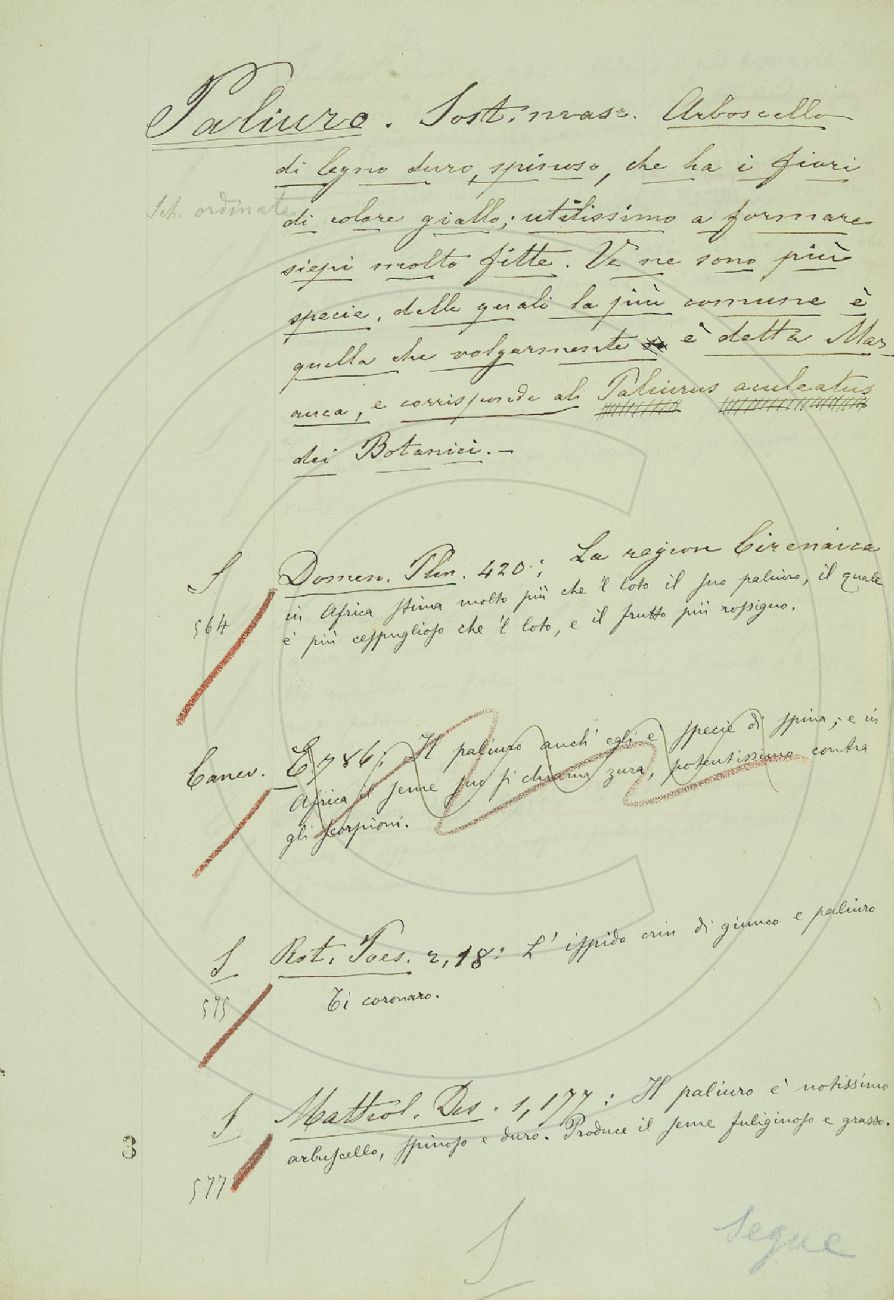 Paliuro. Sost. masc. Arboscello
di legno duro, spinoso, che ha i fiori
Sch. ordinate
di colore giallo; utilissimo a formare
siepi molto fitte. Ve ne sono più
specie, delle quali la più comune è
quella che volgarmente è detta Mar-
ruca, e corrisponde al Paliurus aculeatus
dei Botanici.–
S Domen. Plin. 420: La region Cirenaica
564 in Africa stima molto più che 'l loto il suo paliuro, il quale
è più cespuglioso che 'l loto, e il frutto più rossigno.
E 786: Il paliuro anch' egli è specie di spina; e in
Africa il seme suo si chiama zura, potentissimo contra
gli scorpioni.
S Rot. Poes. 2,18: L' ispido crin di giunco e paliuro
575 Ti coronaro.
S Mattiol. Dis. 1,177: Il paliuro è notissimo
577 arbuscello, spinoso e duro. Produce il seme fuliginoso e grasso.
8
S
Segue